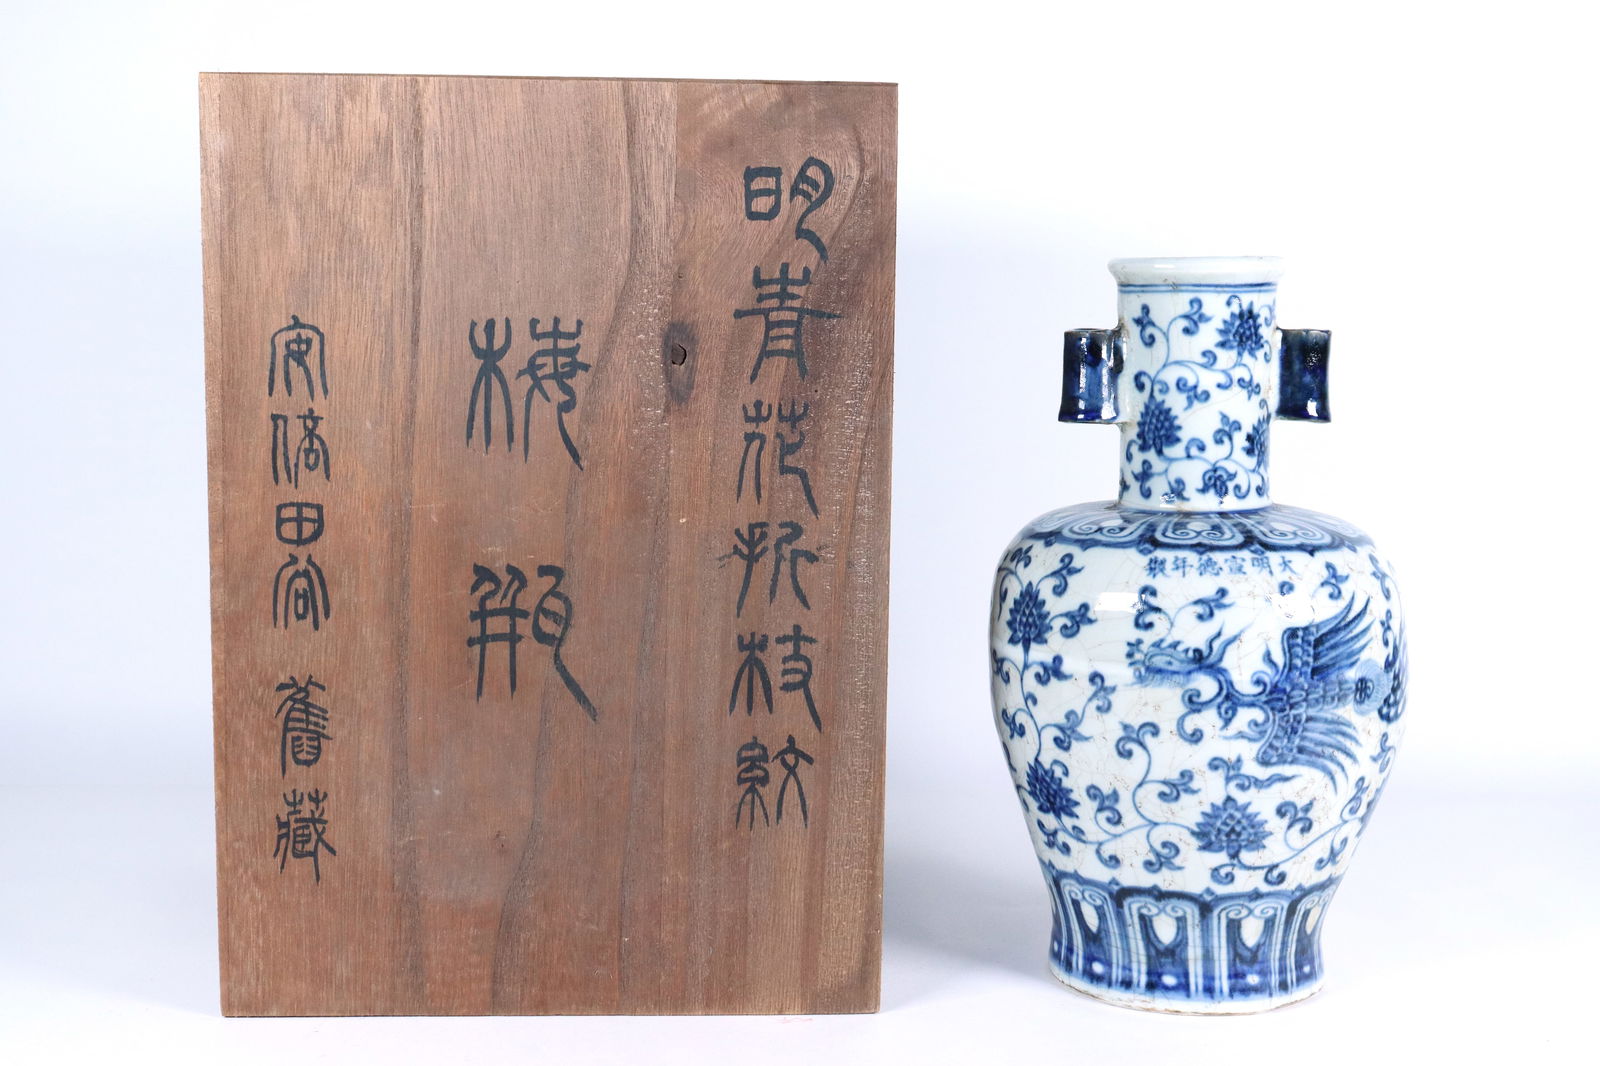 明青花折枝紋
梅瓶
安脩田谷 舊藏
大明宣德年製